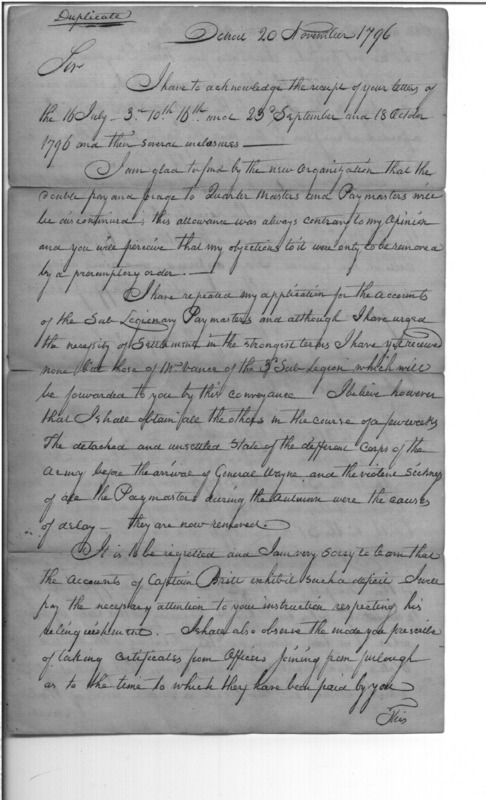 Duplicate
Detroit 20 November 1796
Sir
I have to acknowledge the receipt of your letters of
the 16 July - 3rd 10th 16th and 23d September and 18 October
1796 and their several inclosures
I am glad to find by the new Organization that the
double pay and forage to Quarter Masters and Paymasters will
be discontinued; this allowance was always contrary to my Opinion
and you will perceive that my objections to it were only to be removed
by a preremptory order.
I have repeated my application for the accounts
of the Sub Legionary Paymasters and although I have urged
the necessity of Settlement in the strongest terms I have yet received
none but those of Mr Vance of the 3d Sub Legion which will
be forwarded to you by this conveyance I believe however
that I shall obtain all the others in the course of a few weeks
The detached and unsettled State of the different Corps of the
Army before the arrival of General Wayne and the violent Sickness
of all the Paymasters during the Autumn were the causes
of delay - they are now removed
It is to be regretted and I am very sorry to learn that
the accounts of Captain Britt exhibit such a deficit I will
pay the necessary attention to your instruction respecting his
. I shall also observe the mode you prescribe
of taking Certificates from Officers joining from furlough
as to the time to which they have been paid by you
This